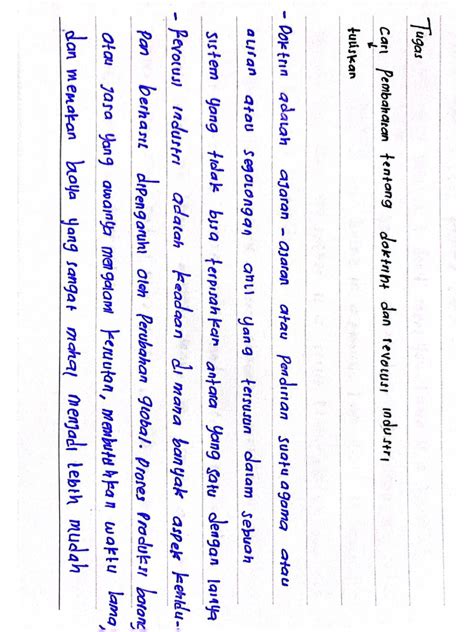 Tugas
Cari Pembahasan tentang doktrin dan revolusi industri
tuliskan
- Doktrin adalah ajaran - ajaran atau Pendirian suatu agama atau
aliran atau segolongan ahli yang tersusun dalam sebuah
sistem yang tidak bisa terpisahkan antara yang satu dengan lainya
- Revolusi industri adalah keadaan di mana banyak aspek kehidu-
pan berhasil dipengaruhi oleh Perubahan global. Proses Produksi barang
atau jasa yang awalnya mengalami kerumitan, membutuhkan waktu lama,
dan memakan biaya yang sangat mahal menjadi lebih mudah